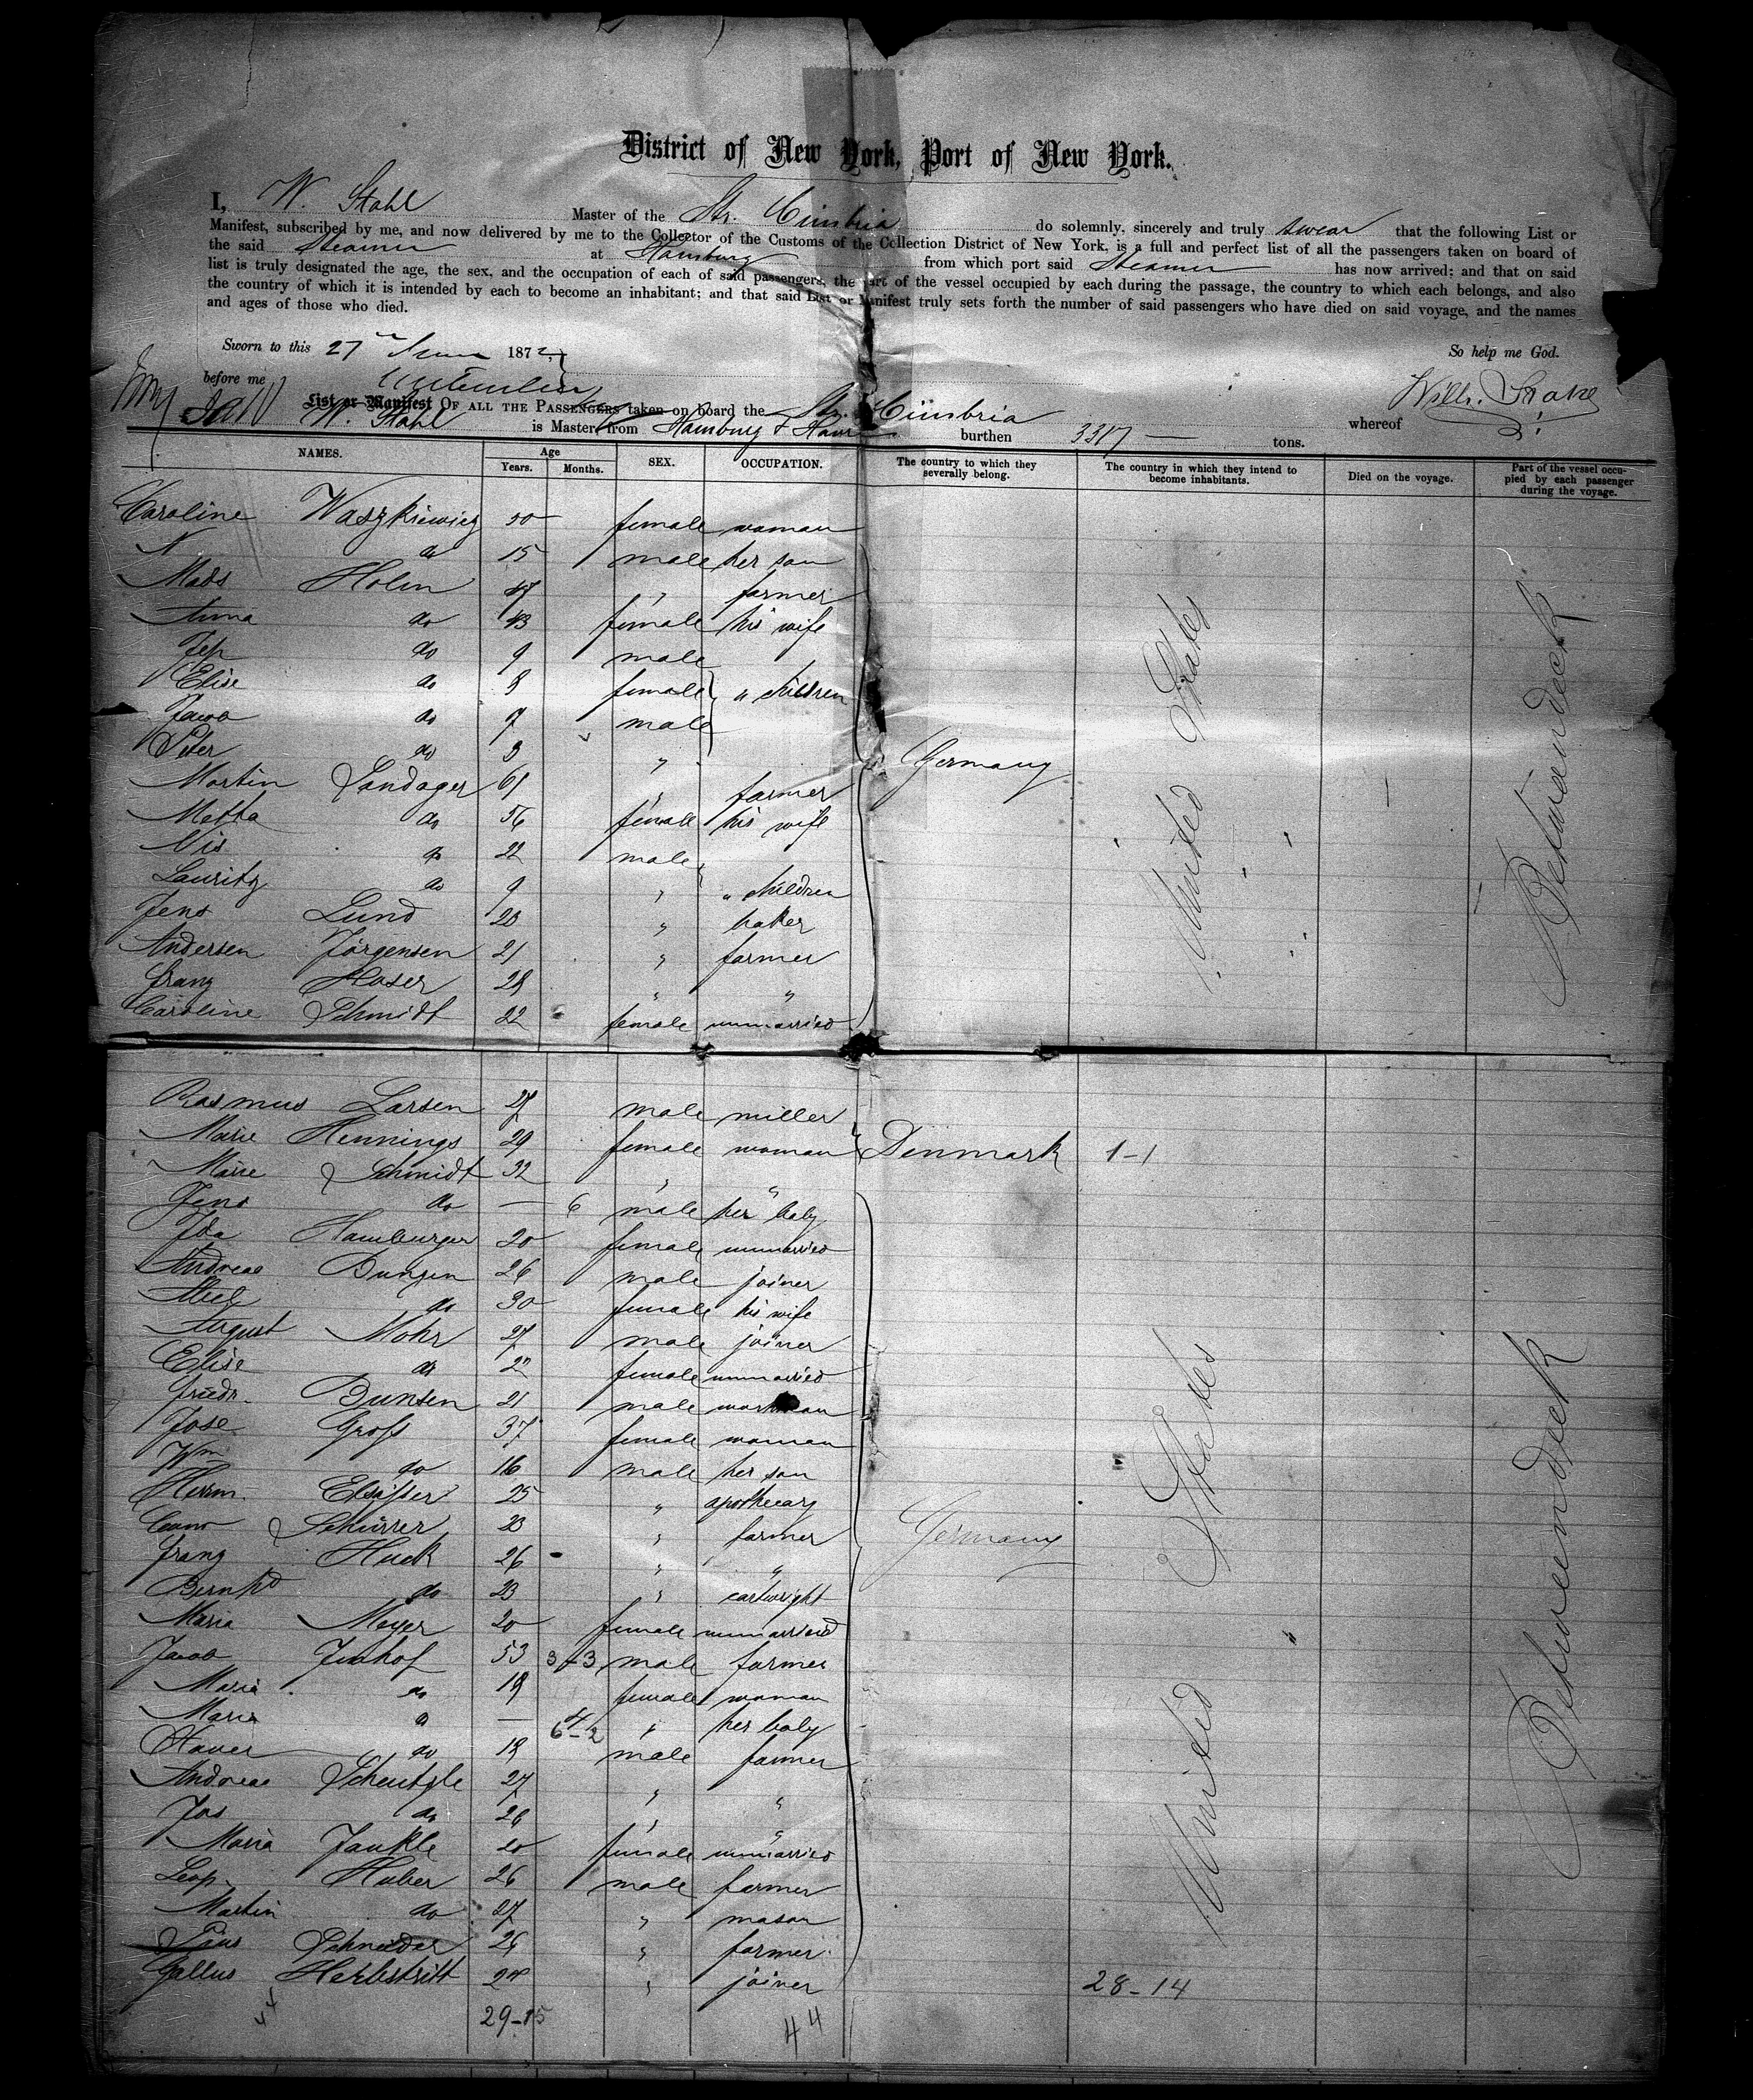 District of New York, Port of New York.
I, W. Stahl Master of the Str. Cimbria do solemnly, sincerely and truly swear that the following List or
Manifest, subscribed by me, and now delivered by me to the Collector of the Customs of the Collection District of New York, is a full and perfect list of all the passengers taken on board of
the said Steamer at Hamburg from which port said Steamer has now arrived; and that on said
list is truly designated the age, the sex, and the occupation of each of said passengers, the part of the vessel occupied by each during the passage, the country to which each belongs, and also
the country of which it is intended by each to become an inhabitant; and that said List or Manifest truly sets forth the number of said passengers who have died on said voyage, and the names
and ages of those who died.
So help me God.
Sworn to this 27 June 1872
before me
List or Manifest OF ALL THE PASSENGERS taken on board the Str. Cimbria whereof
W. Stahl is Master from Hamburg & Havre burthen 3317 — tons.
NAMES. Age Years. Months. SEX. OCCUPATION. The country to which they severally belong. The country in which they intend to become inhabitants. Died on the voyage. Part of the vessel occupied by each passenger during the voyage.
Caroline Waszkiewicz 50 female woman
N do 15 male her son
Mads Holm 47 " farmer
Anna do 43 female his wife
Jep do 9 male
Elise do 8 female " children
Jacob do 7 male
Peter do 3 "
Germany
United States
Betweendeck
Martin Sandager 61 " farmer
Metta do 56 female his wife
Nis do 22 male
Lauritz do 9 " " children
Jens Lund 23 " baker
Andersen Jörgensen 21 " farmer
Franz Hoser 28 " "
Caroline Schmidt 22 female unmarried
Rasmus Larsen 27 male miller
Marie Hennings 29 female woman Denmark 1-1
Marie Schmidt 32 " "
Jens do — 6 male her baby
Ida Hamburger 20 female unmarried
Andreas Bunzen 26 male joiner
do 30 female his wife
August Mohr 27 male joiner
Elise do 22 female unmarried
Friedr. Bunsen 21 male workman
Jose Gross 37 female woman
Wm do 16 male her son
Herrm. Elsässer 25 " apothecary
Schürrer 23 " farmer
Germany
United States
Betweendeck
Franz Huck 26 " "
Bernhd do 23 " cartwright
Maria Meyer 20 female unmarried
Jacob Imhof 53 3-3 male farmer
Maria do 18 female woman
Maria do — 6-2 " her baby
Xaver do 18 male farmer
Andreas Scheutzle 27 " "
Jos do 26 " "
Maria Jaukle 20 female unmarried
Leop. Huber 26 male farmer
Martin do 27 " mason
Pius Schneider 26 " farmer
Gallus Herbstritt 24 " joiner
28-14
29-15
44
44